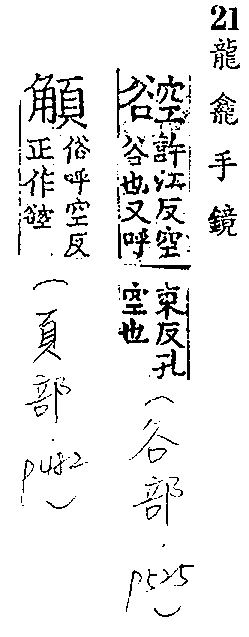 21 龍龕手鏡
谾 許江反空
谷也又呼
東反孔
空也
(谷部.p525)
俗呼空反
正作谾
(頁部.p482)